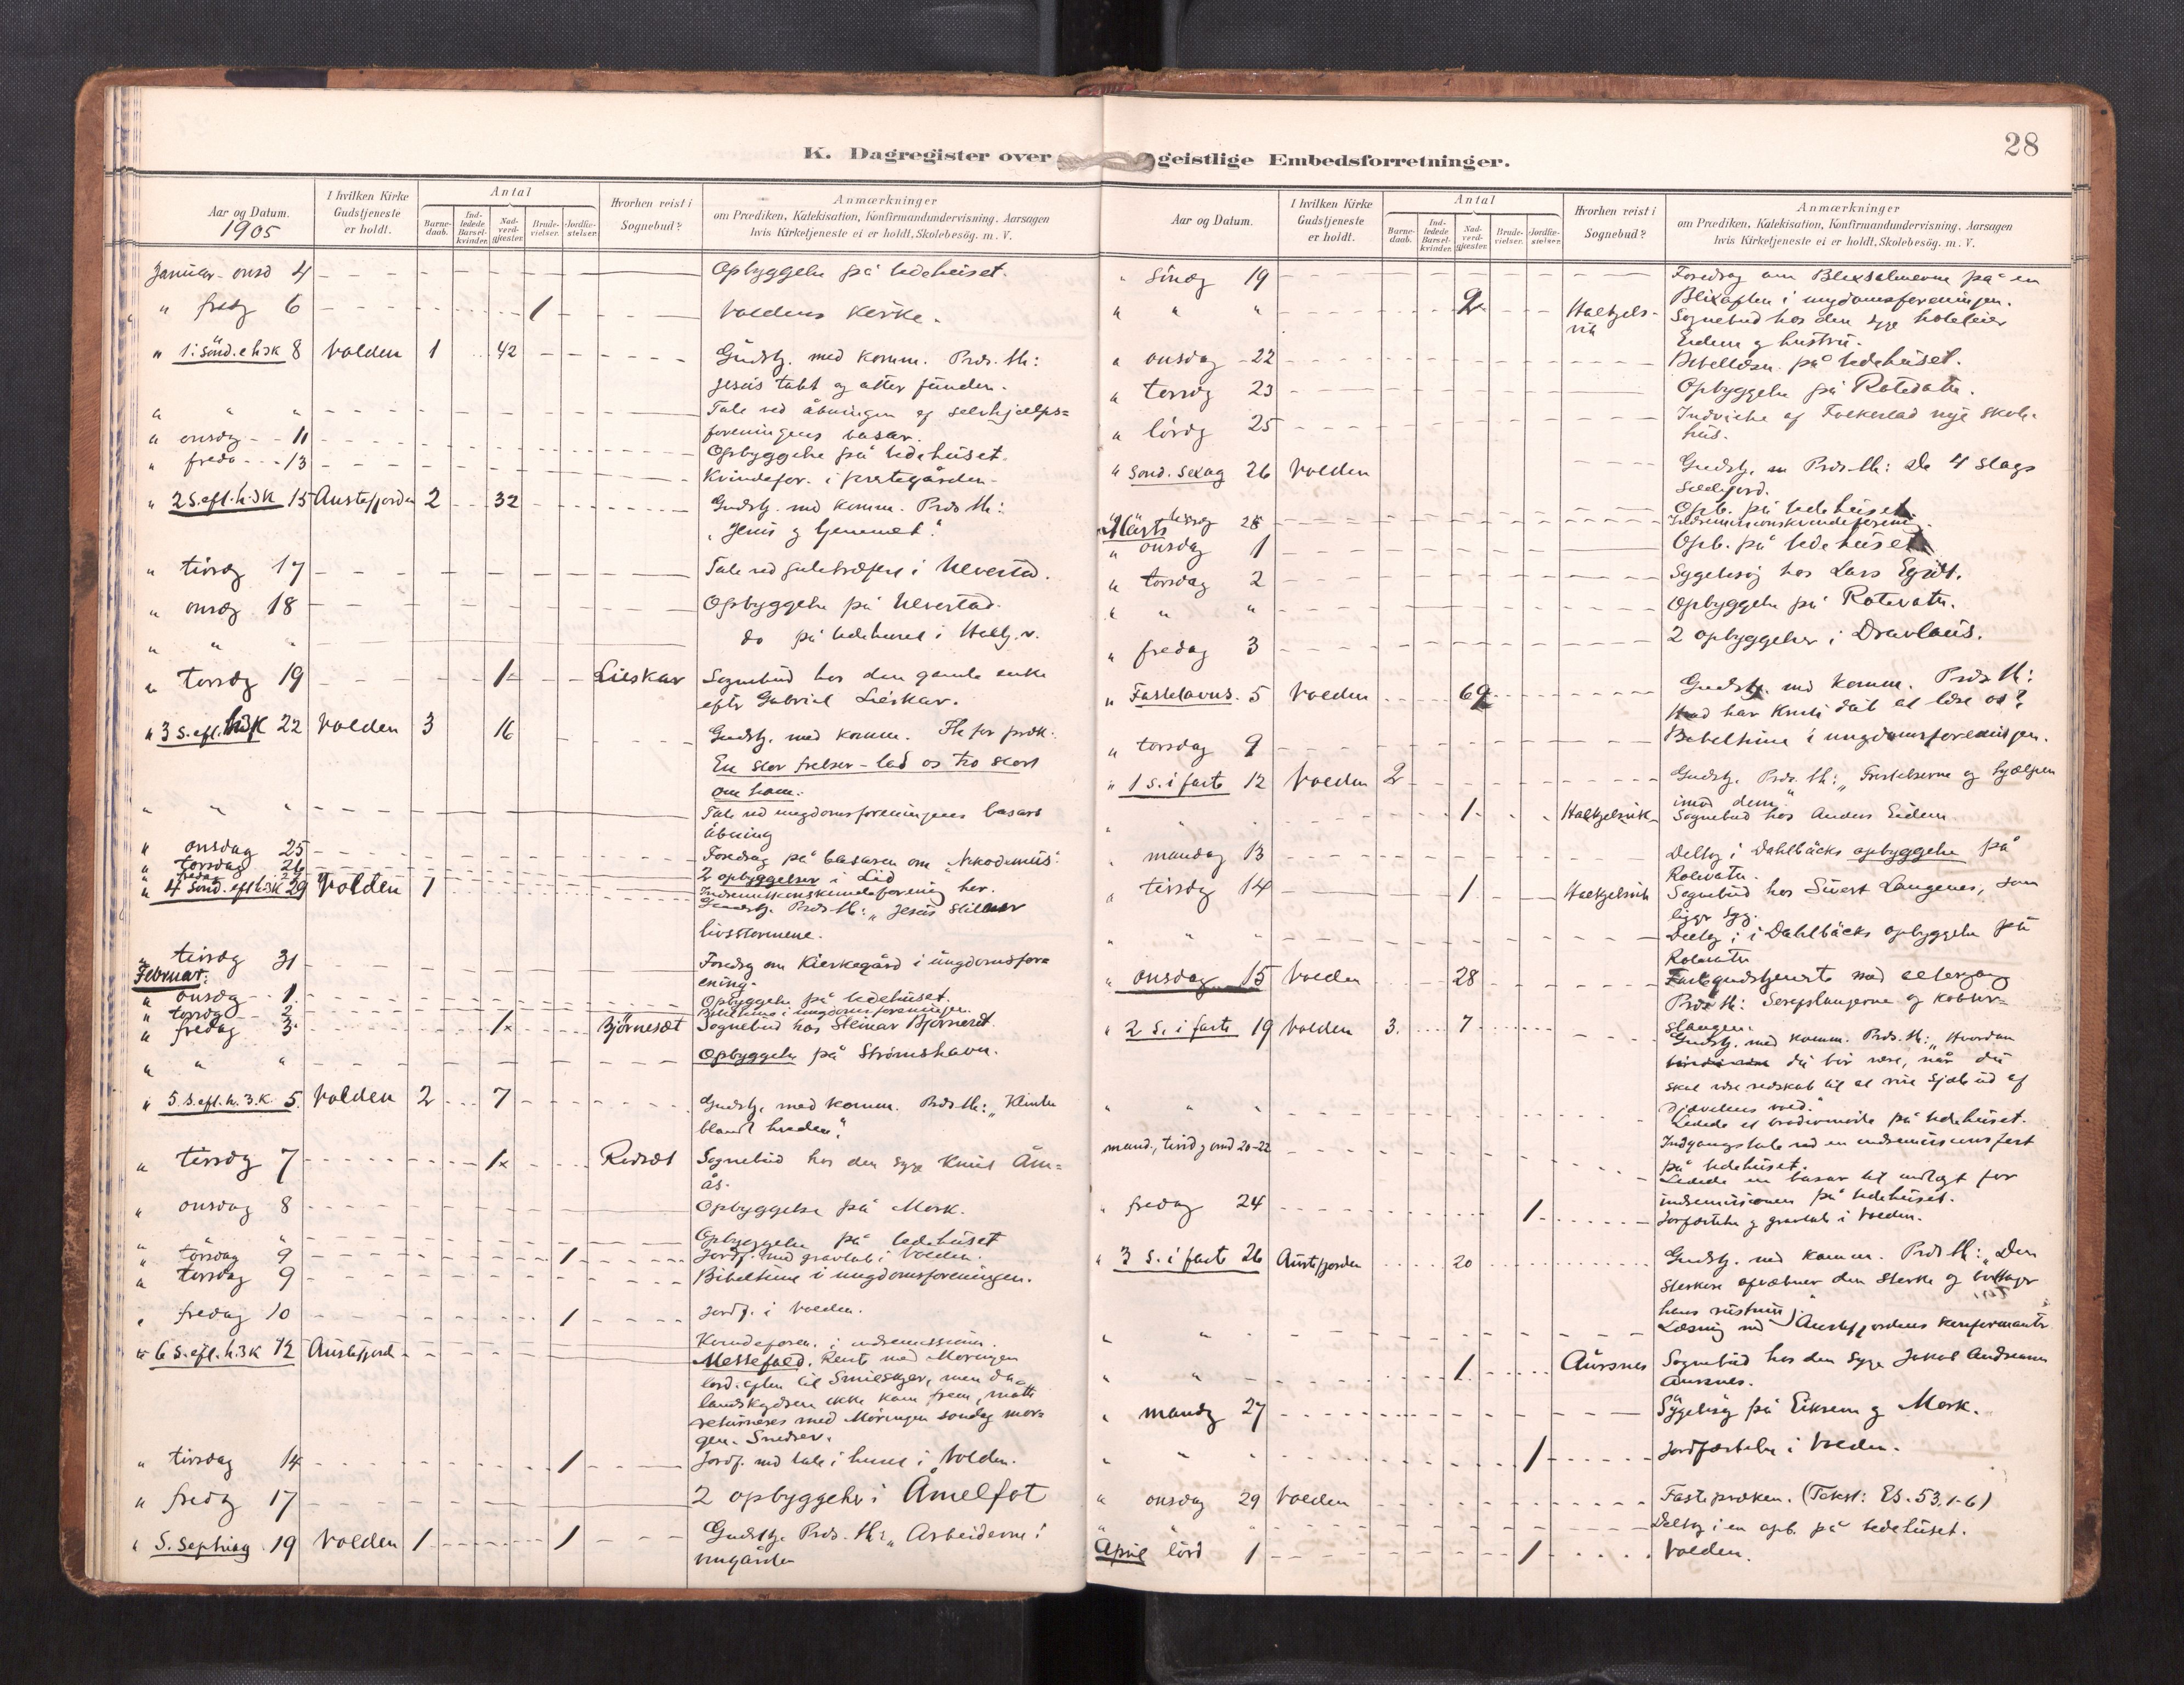 28
K. Dagregister over geistlige Embedsforretninger.
Aar og Datum.
1905
I hvilken Kirke Gudstjeneste er holdt.
Antal
Barnedaab.
Indledede Barselkvinder.
Nadverdgjester.
Brudevielser.
Jordfæstelser.
Hvorhen reist i Sognebud?
Anmærkninger
om Prædiken, Katekisation, Konfirmandundervisning, Aarsagen
hvis Kirketjeneste ei er holdt, Skolebesög. m. V.
Januar onsd 4 Opbyggelse på bedehuset.
" fredg 6 1 Voldens kirke.
" 1. sönd. e h3k 8 Volden 1 42 Gudstj. med komm. Præd. th:
Jesus tabt og atter funden.
" " " Tale ved åbningen af selvhjælps=
foreningens basar.
" onsdg 11 Opbyggelse på bedehuset.
" freda 13 Kvindefor. i prestegården.
" 2 S. eft. h. 3K 15 Austefjorden 2 32 Gudstj. med komm. Præd th:
"Jesus og hjemmet".
" tirsdg 17 Tale ved i Ulvestad.
" onsdg 18 Opbyggelse på Ulvestad.
" " " do på bedehuset i Halkj.v.
" torsdg 19 1 Lieskar Sognebud hos den gamle enke
efter Gabriel Lieskar.
" 3 s. eft. h3k 22 Volden 3 16 Gudstj. med komm. Th for præk:
En stor frelser - lad os tro stort
om ham.
" " " Tale ved ungdomsforeningens basars
åbning
" onsdag 25 Foredrag på basaren om "Nikodemus".
" torsdag 26 2 opbyggelser i Lid
" fredag 27 Indremissionskvindeforening her.
" 4 sönd. eft h3k 29 Volden 1 Gudstj. Præd. th: "Jesus stiller
livsstormene.
" tirsdg 31 Foredrag om Kierkegård i ungdomsfore
ening.
Februar.
" onsdag 1. Opbyggelse på bedehuset.
" torsdag 2 Bibeltime i ungdomsforeningen.
" fredag 3 1 Björneset Sognebud hos Steinar Björneset.
" " " Opbyggelse på Strömshavn.
" 5. S. eft. h. 3. K. 5. Volden 2 7 Gudstj. med komm. Præd. th: "Klinten
blandt hveden".
" tirsdg 7 1 Redset Sognebud hos den syge Knut Åm=
ås.
" onsdag 8 Opbyggelse på Mork.
" " " Opbyggelse på bedehuset
" torsdag 9 1 Jordf. med gravtale i Volden.
" torsdag 9 Bibeltime i ungdomsforeningen.
" fredag 10 1 Jordf. i Volden.
Kvindeforen. i indremissionen.
" 6 S. eft. h.3k 12 Austefjord Messefald. Reiste med Möringen
lörd. aften til men da
landskydsen ikke kom frem, måtte
returneres med Möringen söndag mor=
gen. Snedrev.
" tirsdag 14 1 Jordf. med tale i huset i Volden.
" fredg 17 2 opbyggelser i Åmelfot
" S. Septuag 19 Volden 1 1 Gudstj. Præd. th: "Arbeiderne i
vingården
Aar og Datum.
I hvilken Kirke Gudstjeneste er holdt.
Antal
Barnedaab.
Indledede Barselkvinder.
Nadverdgjester.
Brudevielser.
Jordfæstelser.
Hvorhen reist i Sognebud?
Anmærkninger
om Prædiken, Katekisation, Konfirmandundervisning, Aarsagen
hvis Kirketjeneste ei er holdt, Skolebesög. m. V.
" söndg 19 Foredrag om Blixsalmerne på en
Blixaften i ungdomsforeningen.
" " " 2 Halkjels-
vik Sognebud hos den syge
Eidem og hustru.
" onsdag 22 Bibellæsn. på bedehuset.
" torsdg 23 Opbyggelse på Rotevatn.
" lördg 25 Indvielse af Folkestad nye skole-
hus.
" Sönd. Sexag 26 Volden Gudstj. Præd. th: De 4 slags
sædejord.
" tirsdg 28 Opb. på bedehuset
Indremissionskvindeforening.
Marts
" onsdag 1 Opb. på bedehuset
" torsdag 2 Sygebesög hos Lars Egset.
" " " Opbyggelse på Rotevatn.
" fredag 3 2 opbyggelser i Dravlaus.
" Fastelavns. 5 Volden 69 Gudstj. med komm. Præd th:
Hvad har Kristi dåb at lære os?
" torsdag 9 Bibeltime i ungdomsforeningen.
" 1 S. i faste 12 Volden 2 Gudstj. Præd. th: "Fristelserne og hjælpen
imod dem".
" " 1 Halkjelsvik Sognebud hos Anders Eidem
" mandag 13 Deltog i Dahlbäcks opbyggelse på
Rotevatn.
" tirsdg 14 1 Halkjelsvik Sognebud hos Sivert Langenes, som
ligger syg.
" " " Deltog i Dahlbäcks opbyggelse på
Rotevatn
" onsdag 15 Volden 28 Fastegudstjeneste med altergang
Præd th: Serafslangerne og kobber=
slangen.
" 2 S. i faste 19 Volden 3. 7 Gudstj. med komm. Præd. th: "Hvordan
du bör være, når du
skal være redskab til at rive sjæle ud af
djævelens vold."
" " " Ledede et brödremöde på bedehuset.
mand., tirsd og onsd 20-22 Indgangstale ved en indremissionsfest
på bedehuset.
Ledede en basar til indtægt for
indremissionen på bedehuset.
" fredag 24 1 Jordfæstelse og gravtale i Volden.
" 3 S. i faste 26 Austefjorden 20 Gudstj. med komm. Præd th: "Den
sterkere afvæbner den sterke og borttager
hans rustning".
" " Læsning med Austefjordens konfirmanter
" " 1 Aursnes Sognebud hos den syge Jakob Andreasen
Aursnes.
" mandg 27 Sygebesög på Eiksem og Mork.
" " 1 Jordfæstelse i Volden.
" onsdag 29 Volden Fastepræken. (Tekst: Es. 53, 1-6)
" " Deltog i en opb. på bedehuset.
April lörd 1 1 Volden.